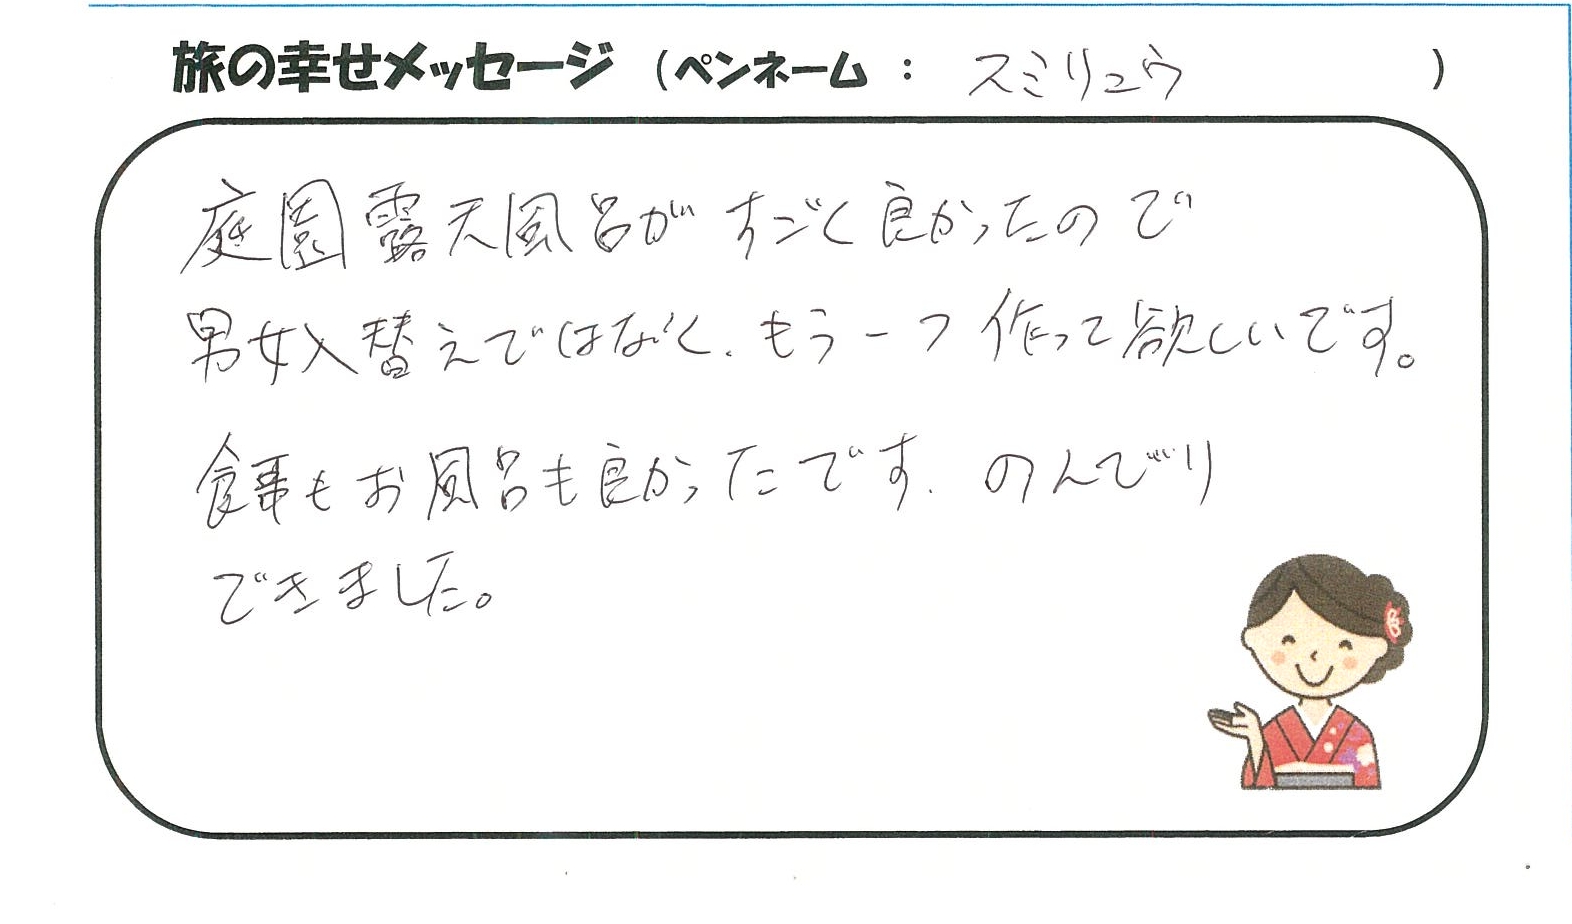 旅の幸せメッセージ (ペンネーム : スミリュウ )
庭園露天風呂がすごく良かったので
男女入替えではなく、もう一つ作って欲しいです。
食事もお風呂も良かったです、のんびり
できました。